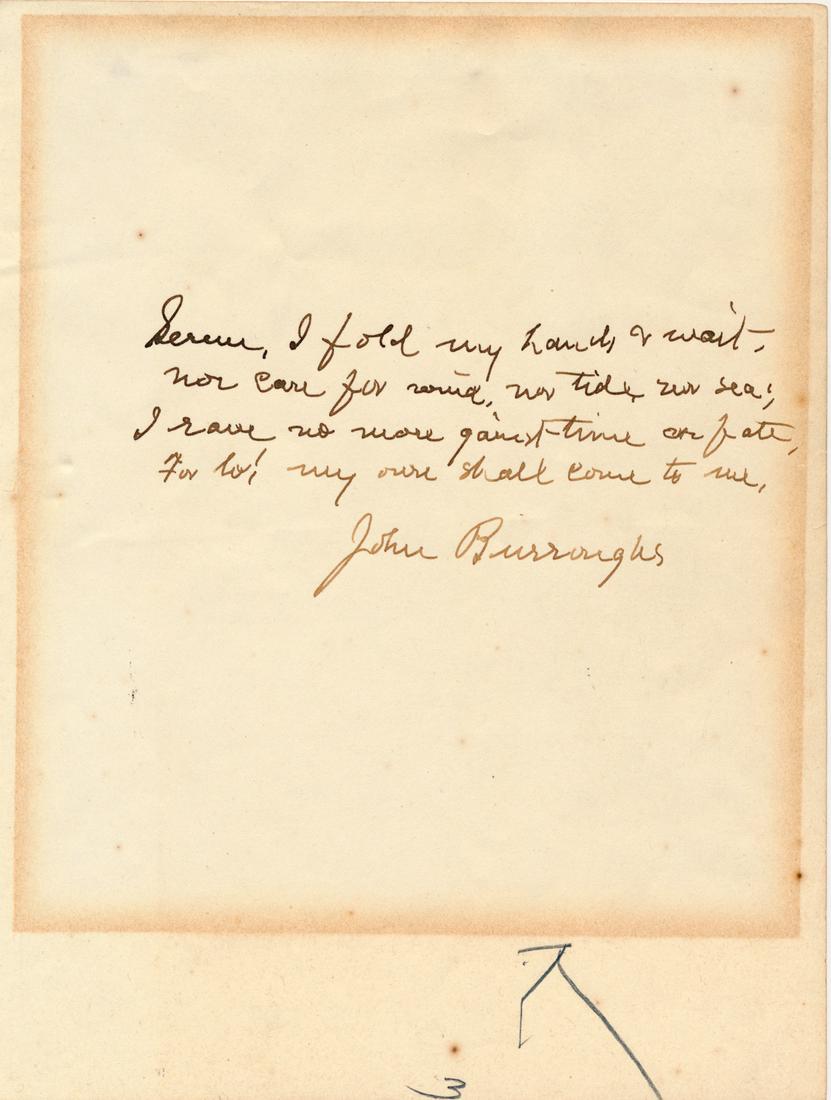 Serene, I fold my hands & wait,
nor care for wind, nor tide nor sea;
I rave no more gainst time or fate,
For lo! my own shall come to me.
John Burroughs
3